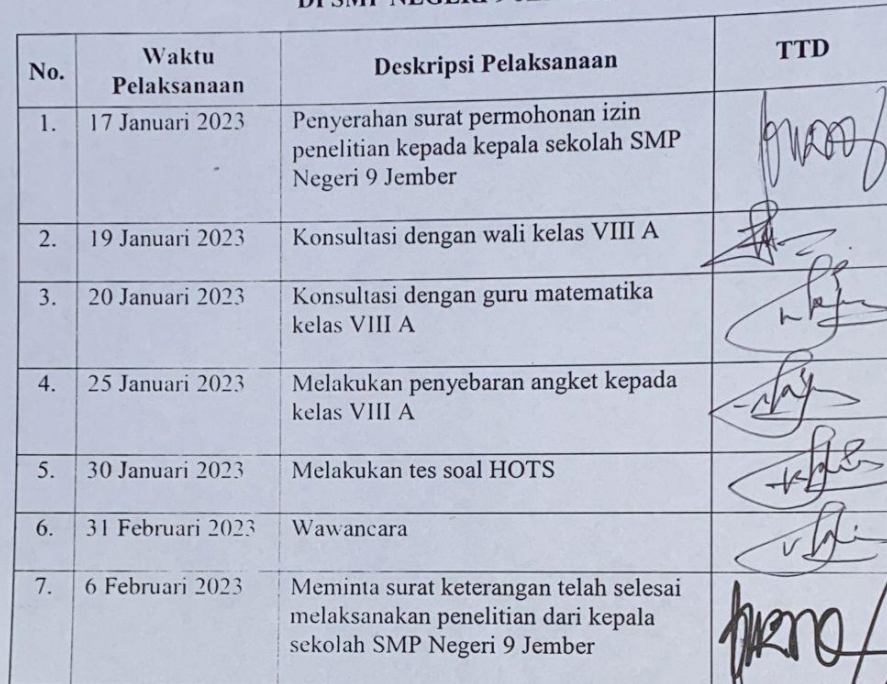 No. Waktu Pelaksanaan Deskripsi Pelaksanaan TTD
1. 17 Januari 2023 Penyerahan surat permohonan izin
penelitian kepada kepala sekolah SMP
Negeri 9 Jember
2. 19 Januari 2023 Konsultasi dengan wali kelas VIII A
3. 20 Januari 2023 Konsultasi dengan guru matematika
kelas VIII A
4. 25 Januari 2023 Melakukan penyebaran angket kepada
kelas VIII A
5. 30 Januari 2023 Melakukan tes soal HOTS
6. 31 Februari 2023 Wawancara
7. 6 Februari 2023 Meminta surat keterangan telah selesai
melaksanakan penelitian dari kepala
sekolah SMP Negeri 9 Jember